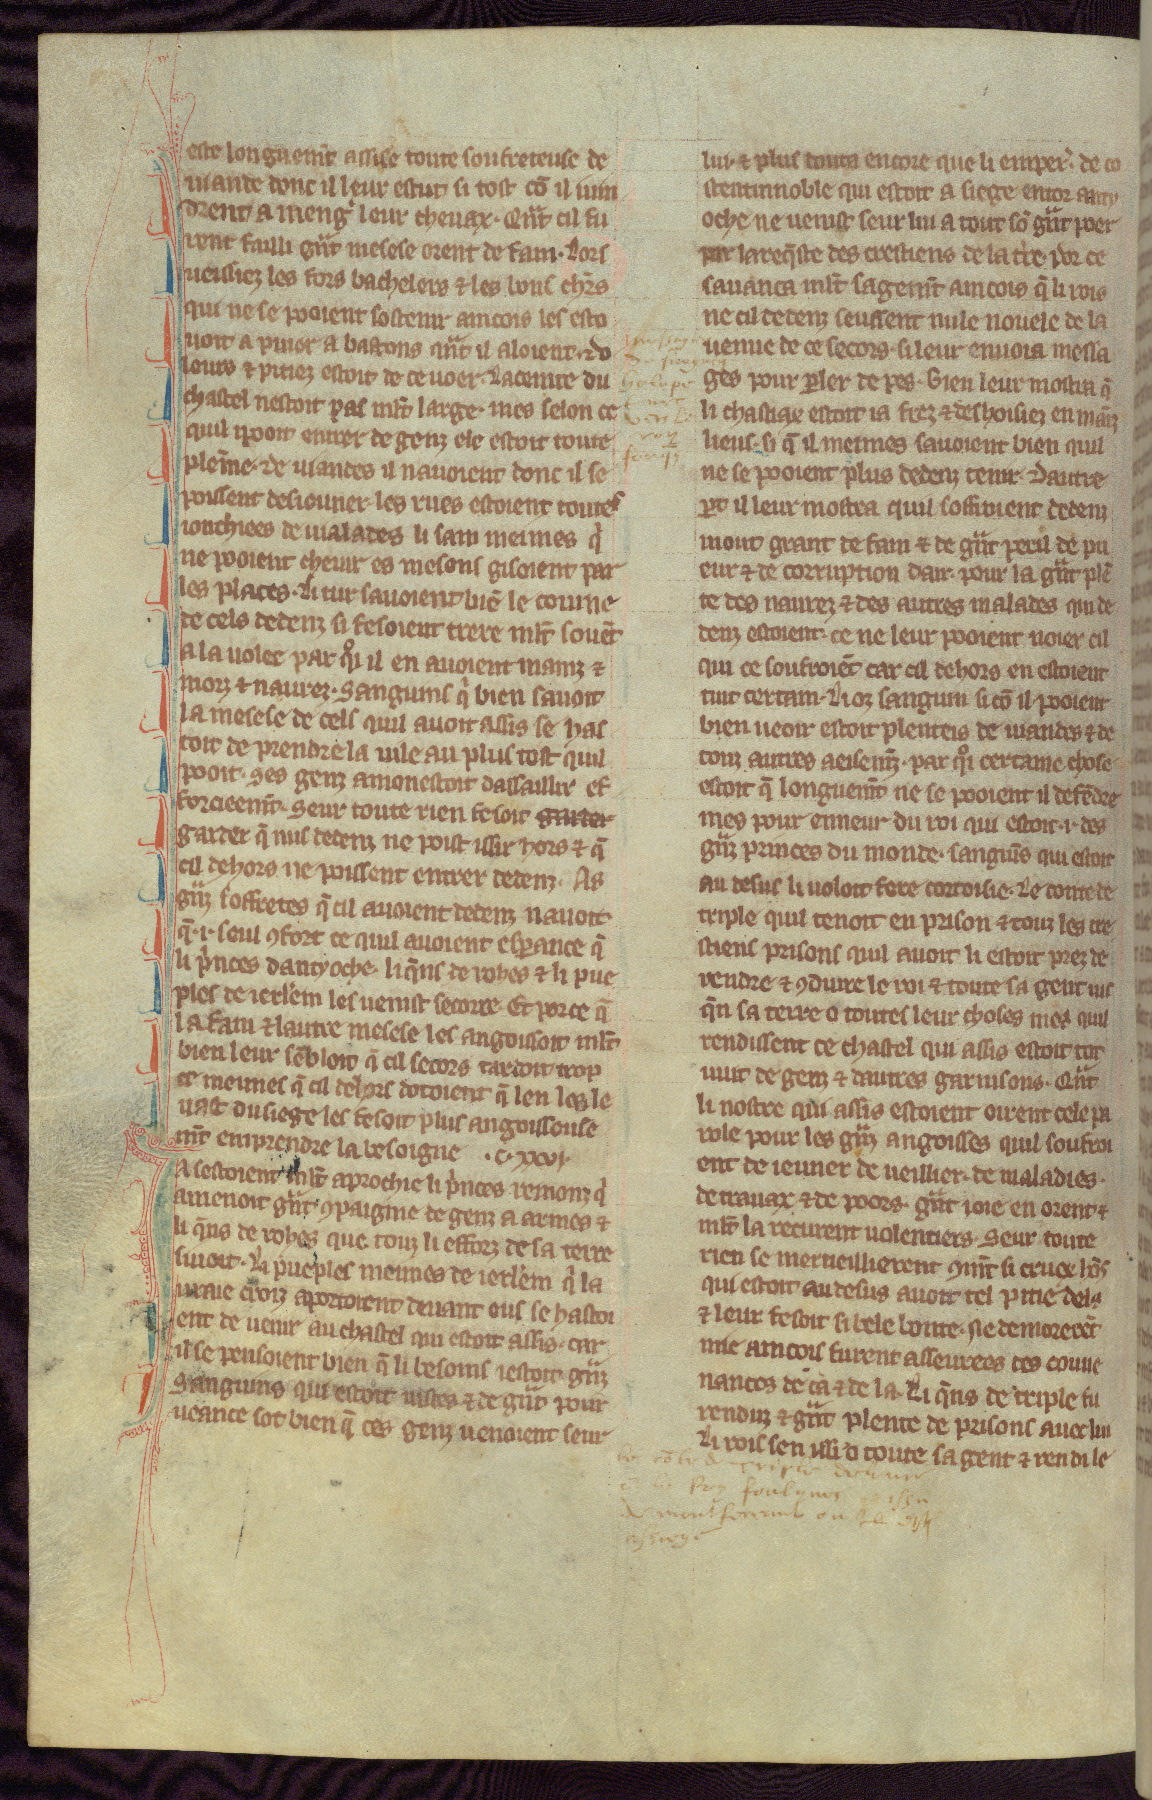 este longuem̄t assise toute soufreteuse de
uiande donc il leur estut si tost cō il uin
drent a meng̾ leur cheuax. Qn̄t cil fu
rent failli gn̄t mesese orent de fam. Lors
ueissiez les fors bachelers ⁊ les bons chrs̄
qui ne se pooient sostenir aincois les esto
uoit apuier a bastons qn̄t il aloient. ⁊ do
leurs ⁊ pitiez estoit de ce uoer. Laceinte du
chastel nestoit pas ml̄t large. mes selon ce
quil ipooit entrer de genz ele estoit toute
pleīne. de uiandes il nauoient donc il se
poissent desieuner. les rues estoient toutes
ionchiees de malades li sain meimes q̄
ne pooient cheuir es mesons gisoient par
les places. Li tur sauoient biē le couine
de cels dedenz si fesoient trere ml̄t souēt
a la uolee par qͦi il en auoient mainz ⁊
morz ⁊ naurez. Sanguins q̄ bien sauoit
la mesese de cels quil auoit assis se has
toit de prendre la uile au plus tost quil
pooit. Ses genz amonestoit dassaillir ef
forcieem̄t. Seur toute rien fesoit garder
garder q̄ nus dedenz ne poist issir hors ⁊ q̄
cil dehors ne poissent entrer dedenz. As
gn̄z soffretes q̄ cil auoient dedenz nauoit
q̄ .i. seul ꝯfort ce quil auoient esꝑance q̄
li p̄nces dantyoche. li q̄ns de rohes ⁊ li pue
ples de ierl̄em les uenist secorre. Et porce q̄
la fam ⁊ lautre mesese les angoissoit ml̄t
bien leur sēbloit q̄ cil secors tardoit trop
ce meimes q̄ cil dehors dotoient q̄ len les le
uast dusiege les fesoit plus angoisseuse
m̄t emprendre la besoigne .C. xxvi.
A sestoient ml̄t aprochie li p̄nces remonz q̄
amenoit gn̄t ꝯpaignie de genz a armes ⁊
li q̄ns de rohes que touz li efforz de la terre
siuoit. Li pueples meimes de ierl̄em q̄ la
uraie croiz aportoient deuant eus se hastoi
ent de uenir au chastel qui estoit assis. car
il se pensoient bien q̄ li besoins iestoit gn̄z
Sanguins qui estoit uistes ⁊ de gn̄t pour
ueance sot bien q̄ ces genz uenoient seur
lui. ⁊ plus douta encore que li emper̾. de co
stentinnoble qui estoit a siege entor anty
oche ne uenist seur lui a tout sō gn̄t poer
par la req̄ste des crestiens de la tr̄e. por ce
sauanca ml̄t sagem̄t aincois q̄ li rois
ne cil dedenz seussent nule nouele de la
uenue de ce secors. si leur enuoia messa
ges pour ꝑler de pes. Bien leur mostra q̄
li chastiax estoit ia frez ⁊ deshoisiez en mainz
lieus. si q̄ il meimes sauoient bien quil
ne se pooient plus dedenz tenir. Dautre
ꝑt il leur mostra quil soffroient dedenz
mout grant de fam ⁊ de gn̄t peril de pu
eur ⁊ de corruption dair. pour la gn̄t plē
te des naurez ⁊ des autres malades qui de
denz estoient. ce ne leur pooient noier cil
qui ce soufroiēt car cil dehors en estoient
tuit certain. Li oz sanguin si cō il pooient
bien ueoir estoit plenteis de uiandes ⁊ de
touz autres aesem̄z. par qͦi certaine chose
estoit q̄ longuem̄t ne se pooient il defēdre
mes pour enneur du roi qui estoit .i. des
gn̄z princes du monde. sanguīs qui estoit
au desus li uoloit fere cortoisie. Le conte de
triple quil tenoit en prison ⁊ touz les cre
stiens prisons quil auoit li estoit prez de
rendre ⁊ ꝯduire le roi ⁊ toute sa gent ius
q̄n sa terre o toutes leur choses mes quil
rendissent ce chastel qui assis estoit tot
uuit de genz ⁊ dautres garnisons. Qn̄t
li nostre qui assis estoient oirent cele pa
role pour les gn̄z angoisses quil soufroi
ent de ieuner de ueillier. de maladies.
de trauax ⁊ de poors. gn̄t ioie en orent ⁊
ml̄t la recurent uolentiers. Seur toute
rien se merueillierent ꝯm̄t si cruex hōs
qui estoit au desus auoit tel pitie dels
⁊ leur fesoit si bele bonte. Ne demorerēt
mie aincois furent asseurees ces coune
nances de ca ⁊ de la. Li q̄ns de triple fu
renduz ⁊ gn̄t plente de prisons auec lui
Li rois sen issi o toute sa gent ⁊ rendi le